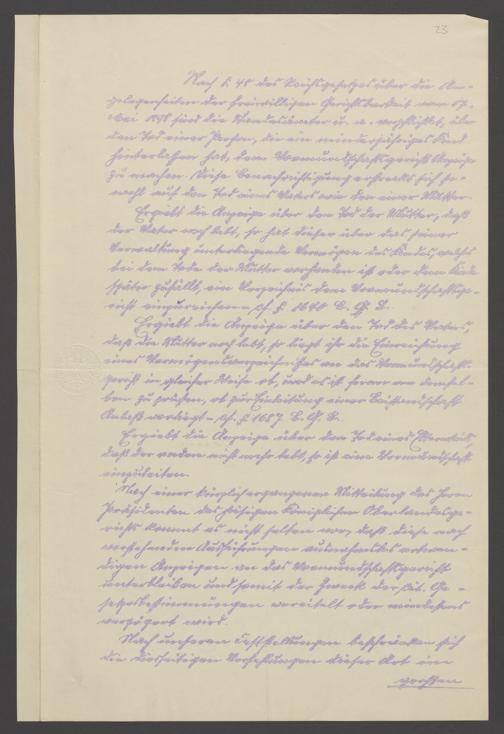 23
Nach § 48 des Reichsgesetzes über die An-
gelegenheiten der freiwilligen Gerichtsbarkeit vom 17.
Mai 1898 sind die Standesämter u. a. verpflichtet, über
den Tod einer Person, die ein minderjähriges Kind
hinterlassen hat, dem Vormundschaftsgericht Anzeige
zu machen. Diese Benachrichtigung erstreckt sich so-
wohl auf den Tod eines Vaters wie den einer Mutter.
Ergiebt die Anzeige über den Tod der Mutter, daß
der Vater noch lebt, so hat dieser über das seiner
Verwaltung unterliegende Vermögen des Kindes, welches
bei dem Tode der Mutter vorhanden ist oder dem Kinde
später zufällt, ein Verzeichnis dem Vormundschaftsge-
richt einzureichen - cf. § 1640 B. G. B.
Ergiebt die Anzeige über den Tod des Vaters,
daß die Mutter noch lebt, so liegt ihr die Einreichung
eines Vermögensverzeichnisses an das Vormundschafts-
gericht in gleicher Weise ob, und es ist ferner von demsel-
ben zu prüfen, ob zur Einleitung einer Beistandschaft
Anlaß vorliegt - cf. § 1687 B. G. B.
Ergiebt die Anzeige über den Tod eines Elternteils,
daß der andere nicht mehr lebt, so ist eine Vormundschaft
einzuleiten.
Nach einer kürzlich ergangenen Mitteilung des Herrn
Präsidenten des hiesigen Königlichen Oberlandesge-
richts kommt es nicht selten vor, daß diese nach
vorstehenden Ausführungen ausnahmslos notwen-
digen Anzeigen an das Vormundschaftsgericht
unterbleiben und somit der Zweck der cit. Ge-
setzesbestimmungen vereitelt oder mindestens
verzögert wird.
Nach unseren Feststellungen beschränken sich
die diesseitigen Verfehlungen dieser Art im
großen